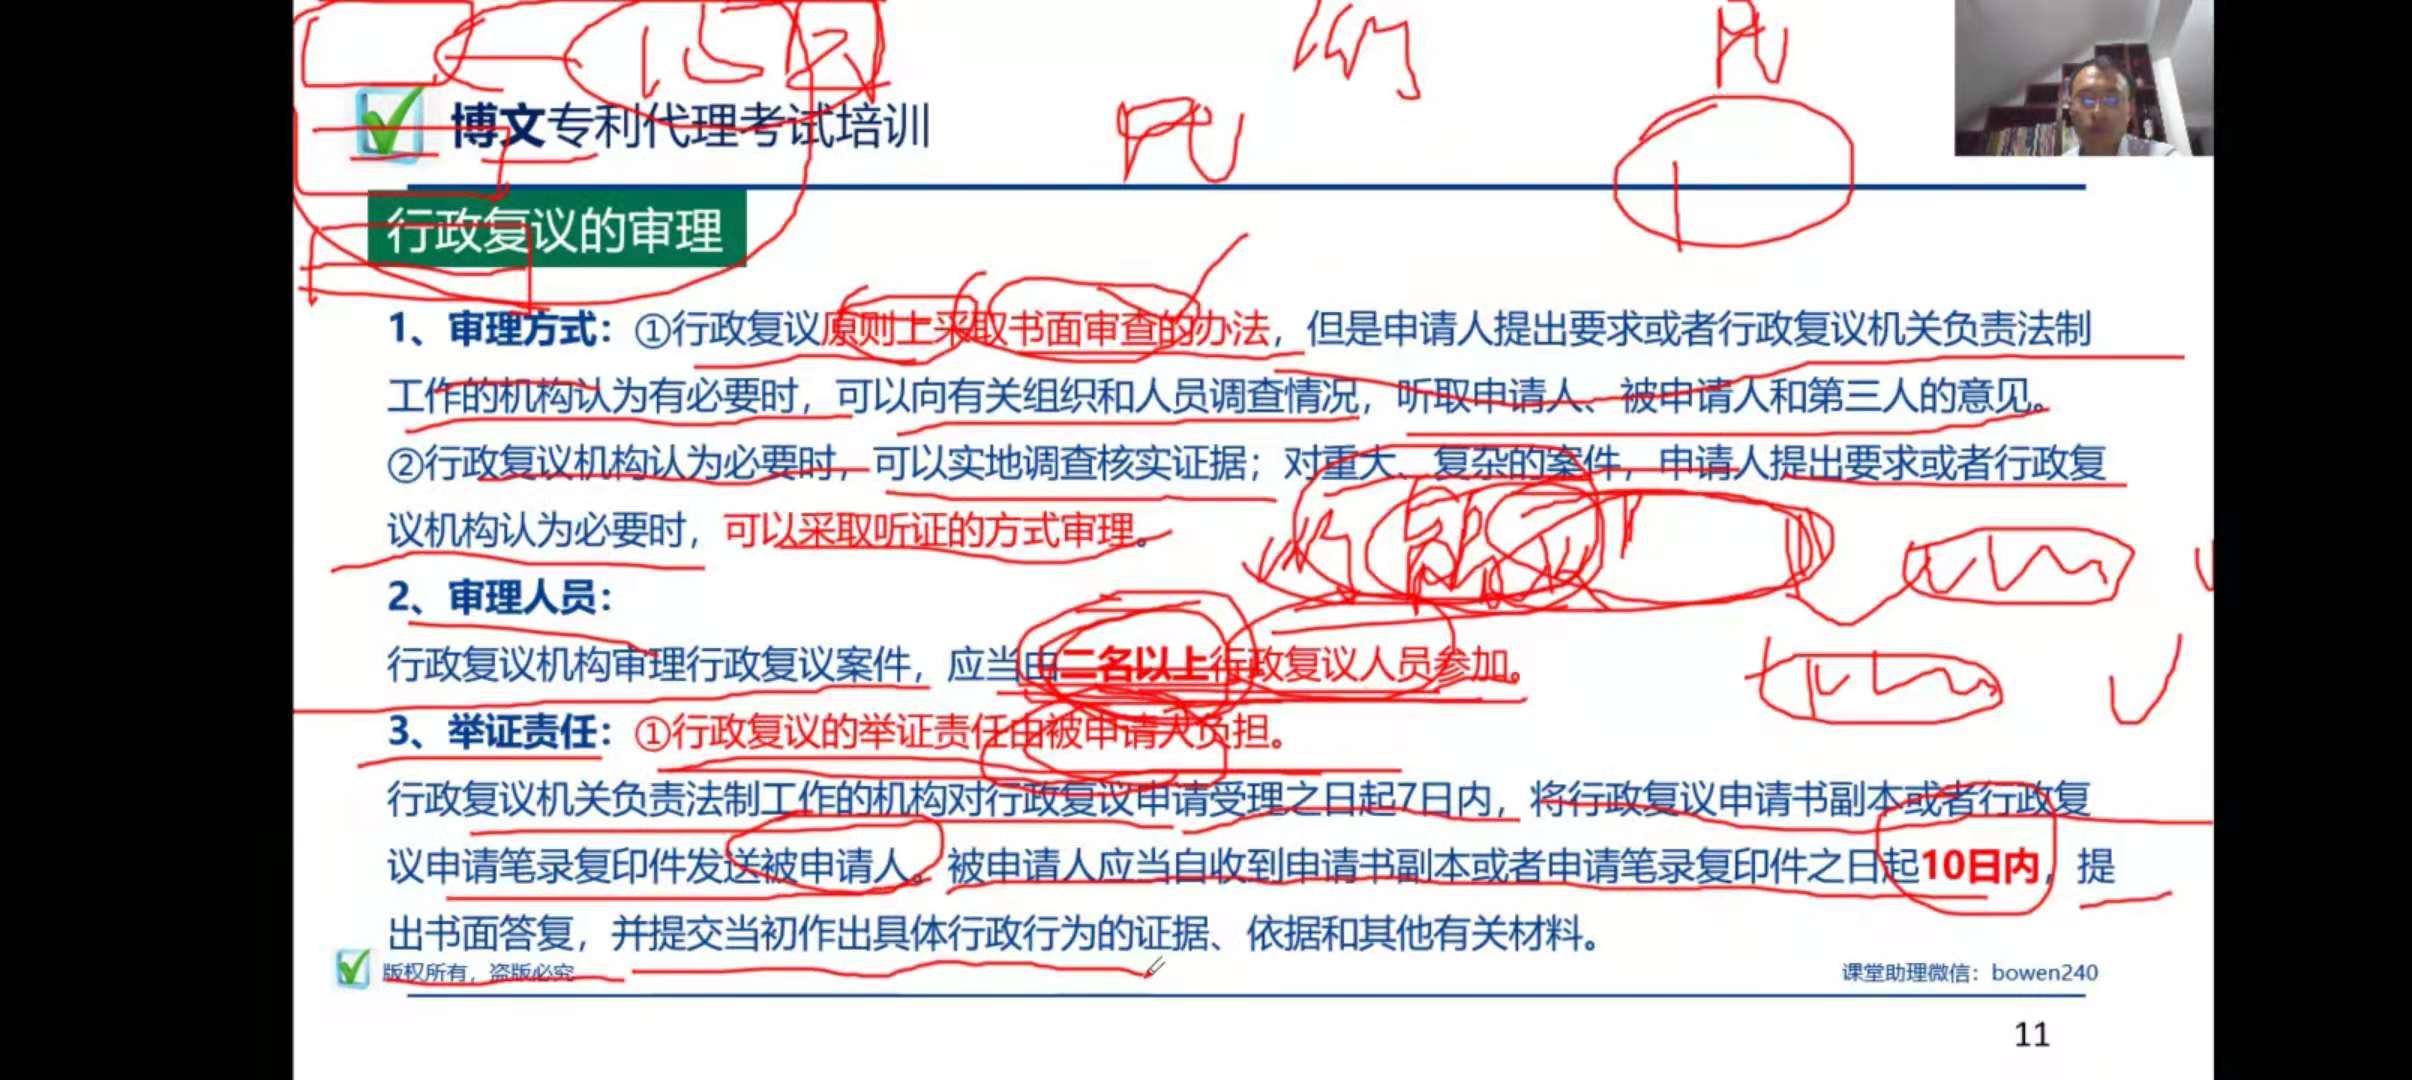 博文专利代理考试培训
行政复议的审理
1、审理方式：①行政复议原则上采取书面审查的办法，但是申请人提出要求或者行政复议机关负责法制
工作的机构认为有必要时，可以向有关组织和人员调查情况，听取申请人、被申请人和第三人的意见。
②行政复议机构认为必要时，可以实地调查核实证据；对重大、复杂的案件，申请人提出要求或者行政复
议机构认为必要时，可以采取听证的方式审理。
2、审理人员：
行政复议机构审理行政复议案件，应当由二名以上行政复议人员参加。
3、举证责任：①行政复议的举证责任由被申请人负担。
行政复议机关负责法制工作的机构对行政复议申请受理之日起7日内，将行政复议申请书副本或者行政复
议申请笔录复印件发送被申请人。被申请人应当自收到申请书副本或者申请笔录复印件之日起10日内，提
出书面答复，并提交当初作出具体行政行为的证据、依据和其他有关材料。
版权所有，盗版必究
课堂助理微信：bowen240
11